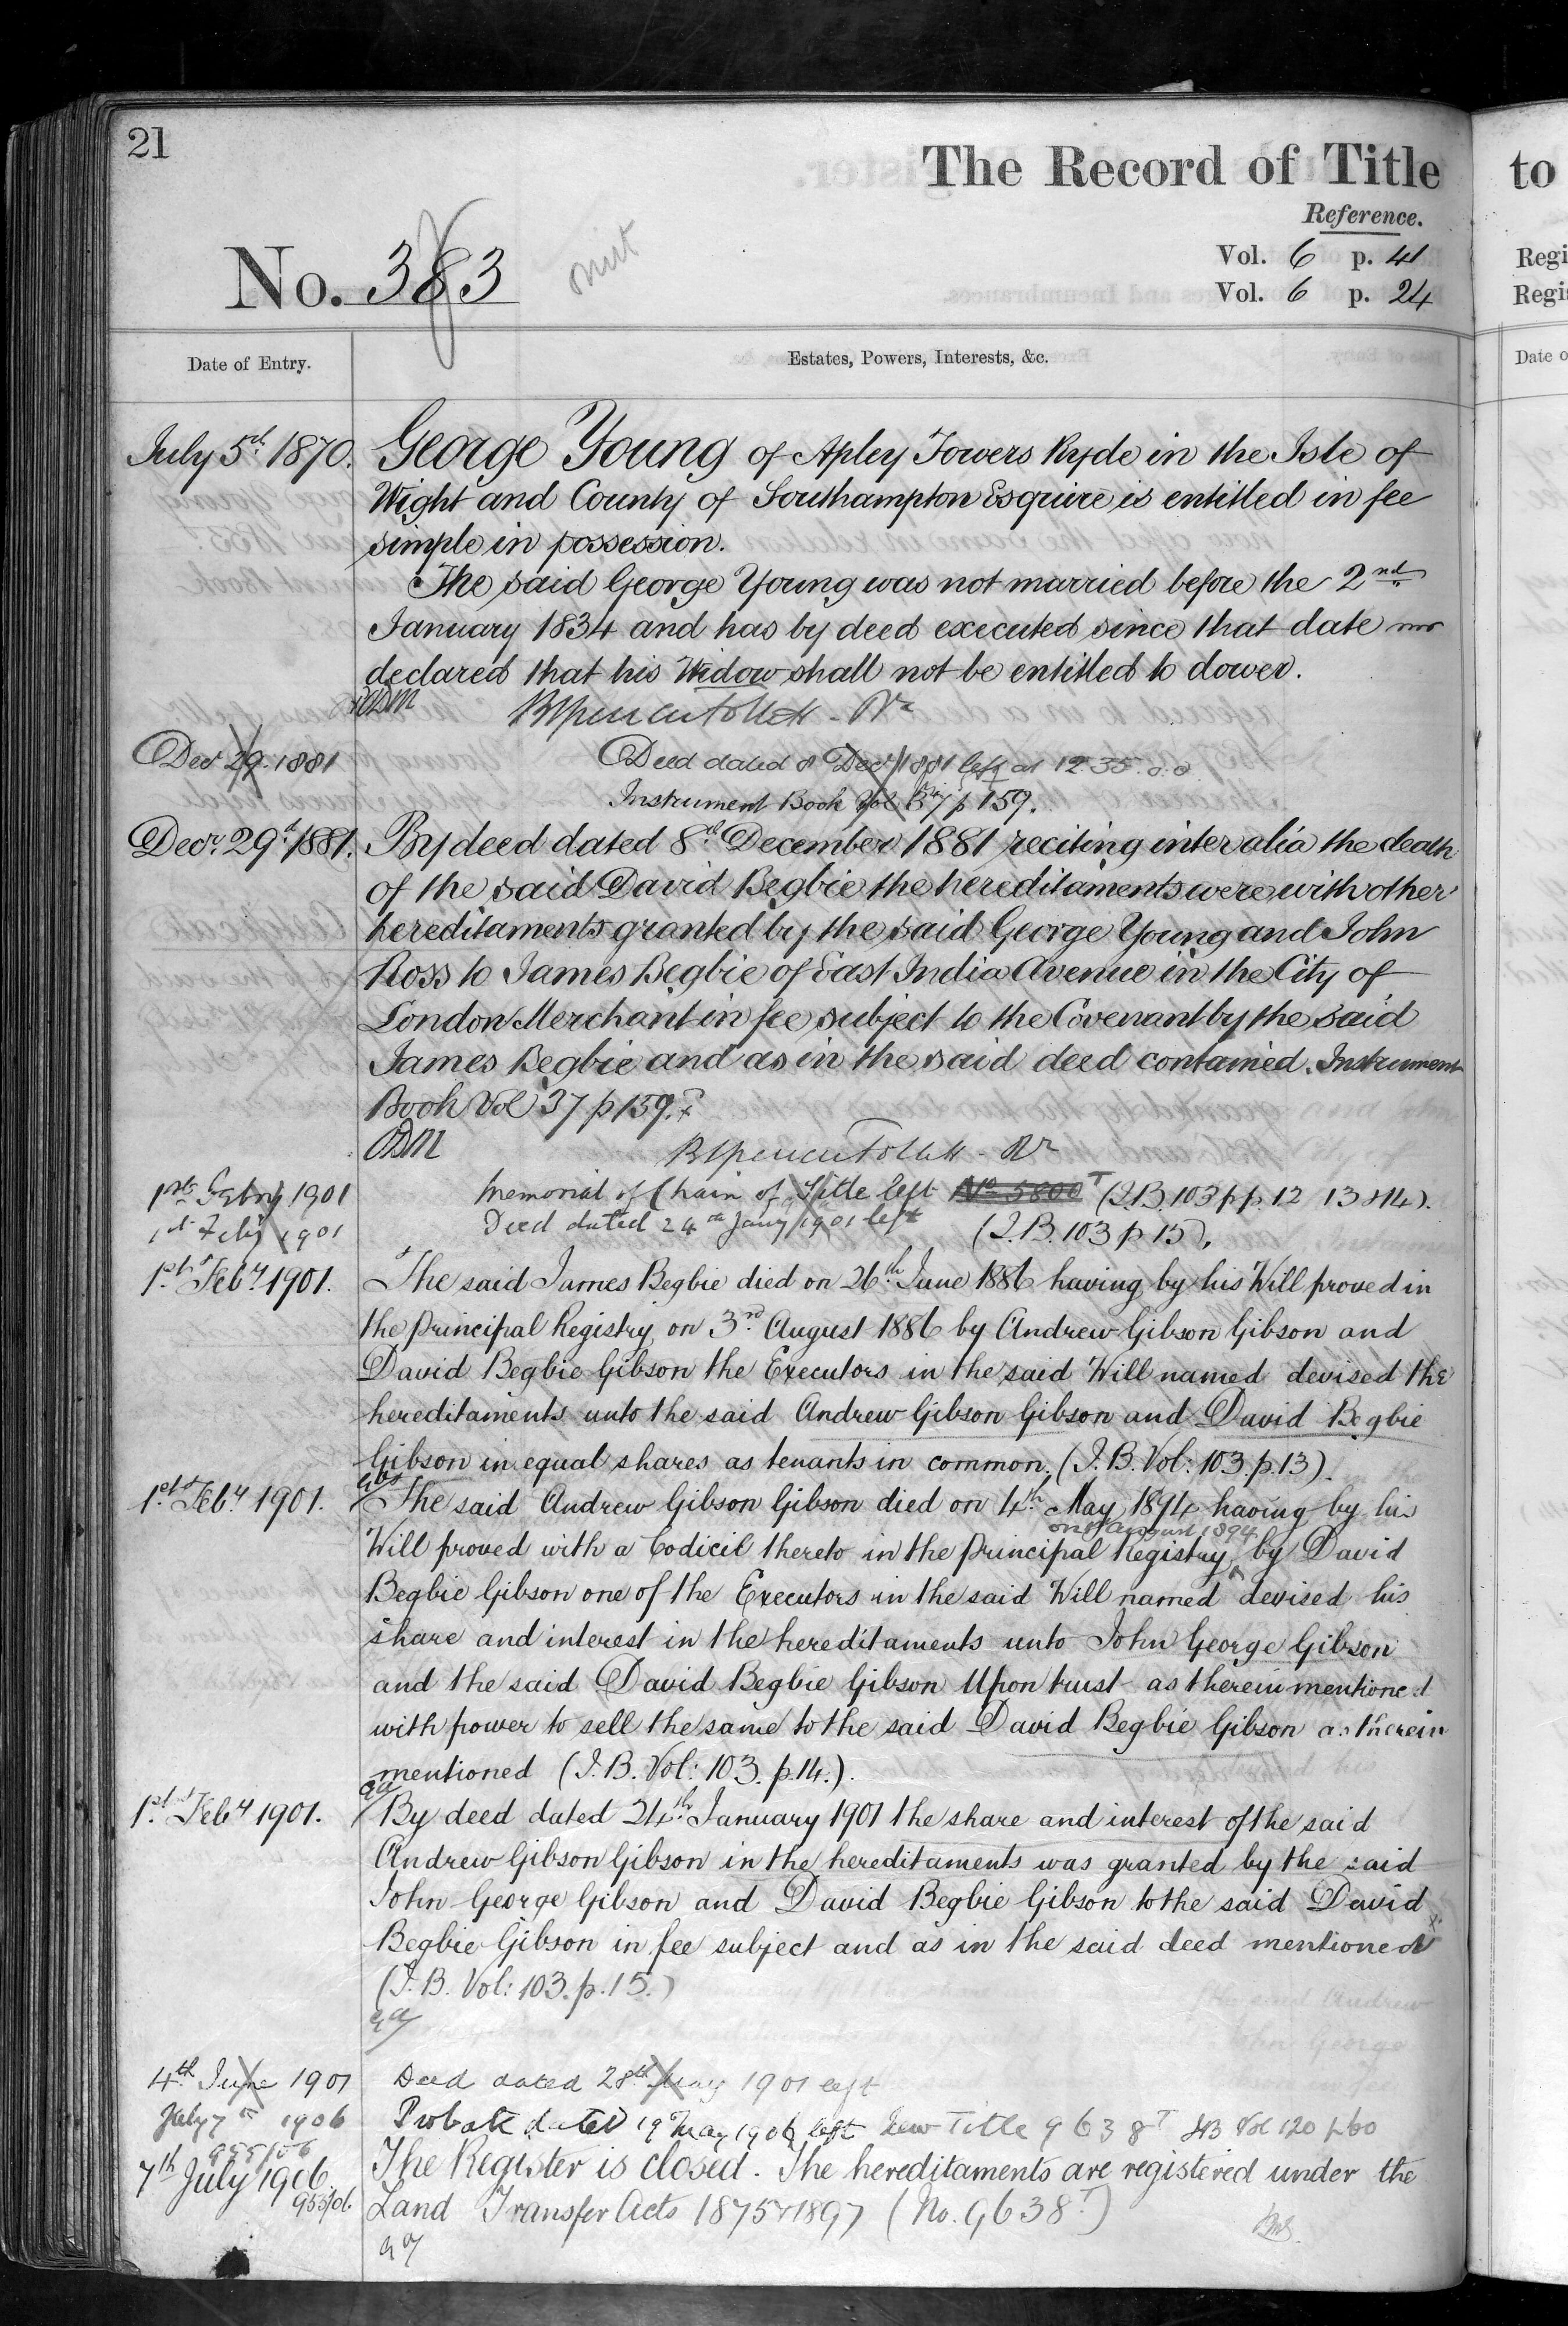 21
The Record of Title
to
Reference.
No. 383
Vol. 6 p. 41
Vol. 6 p. 24
Regi
Regis
Date of Entry.
Estates, Powers, Interests, &c.
Date o
July 5th 1870.
George Young of Apley Towers Ryde in the Isle of
Wight and County of Southampton Esquire is entitled in fee
simple in possession.
The said George Young was not married before the 2nd
January 1834 and has by deed executed since that date
declared that his Widow shall not be entitled to dower.
Decr 29. 1881
Deed dated 8 Decr 1881 left at 12.35.
Instrument Book Vol 37 p 159.
Decr. 29th 1881.
By deed dated 8th December 1881 reciting inter alia the death
of the said David Begbie the hereditaments were with other
hereditaments granted by the said George Young and John
Ross to James Begbie of East India Avenue in the City of
London Merchant in fee subject to the Covenant by the said
James Begbie and as in the said deed contained. Instrument
Book Vol 37 p 159.
1st Febry 1901
Memorial of Chain of Title left No 5800T (I.B. 103 pp. 12 13 & 14).
1st Feby 1901
Deed dated 24th Jany 1901 left (I.B. 103 p 15).
1st Feby 1901.
The said James Begbie died on 26th June 1886 having by his Will proved in
the Principal Registry on 3rd August 1886 by Andrew Gibson Gibson and
David Begbie Gibson the Executors in the said Will named devised the
hereditaments unto the said Andrew Gibson Gibson and David Begbie
Gibson in equal shares as tenants in common. (I.B. Vol: 103. p. 13).
1st Feby 1901.
The said Andrew Gibson Gibson died on 4th May 1894 having by his
August 1894
Will proved with a Codicil thereto in the Principal Registry by David
Begbie Gibson one of the Executors in the said Will named devised his
share and interest in the hereditaments unto John George Gibson
and the said David Begbie Gibson Upon trust as therein mentioned
with power to sell the same to the said David Begbie Gibson as therein
mentioned (I.B. Vol: 103. p. 14.).
1st Feby 1901.
By deed dated 24th January 1901 the share and interest of the said
Andrew Gibson Gibson in the hereditaments was granted by the said
John George Gibson and David Begbie Gibson to the said David
Begbie Gibson in fee subject and as in the said deed mentioned
(I.B. Vol: 103. p. 15.)
4th June 1901
Deed dated 28th May 1901 left
July 7th 1906
Probate dated 19 May 1906 left New Title 9638T IB Vol 120 p 60
955/06
7th July 1906.
The Register is closed. The hereditaments are registered under the
955/06.
Land Transfer Acts 1875 & 1897 (No. 9638T)